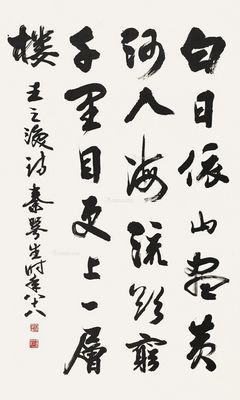 白日依山尽黄
河入海流欲穷
千里目更上一层
楼
王之涣诗秦咢生时年八十八